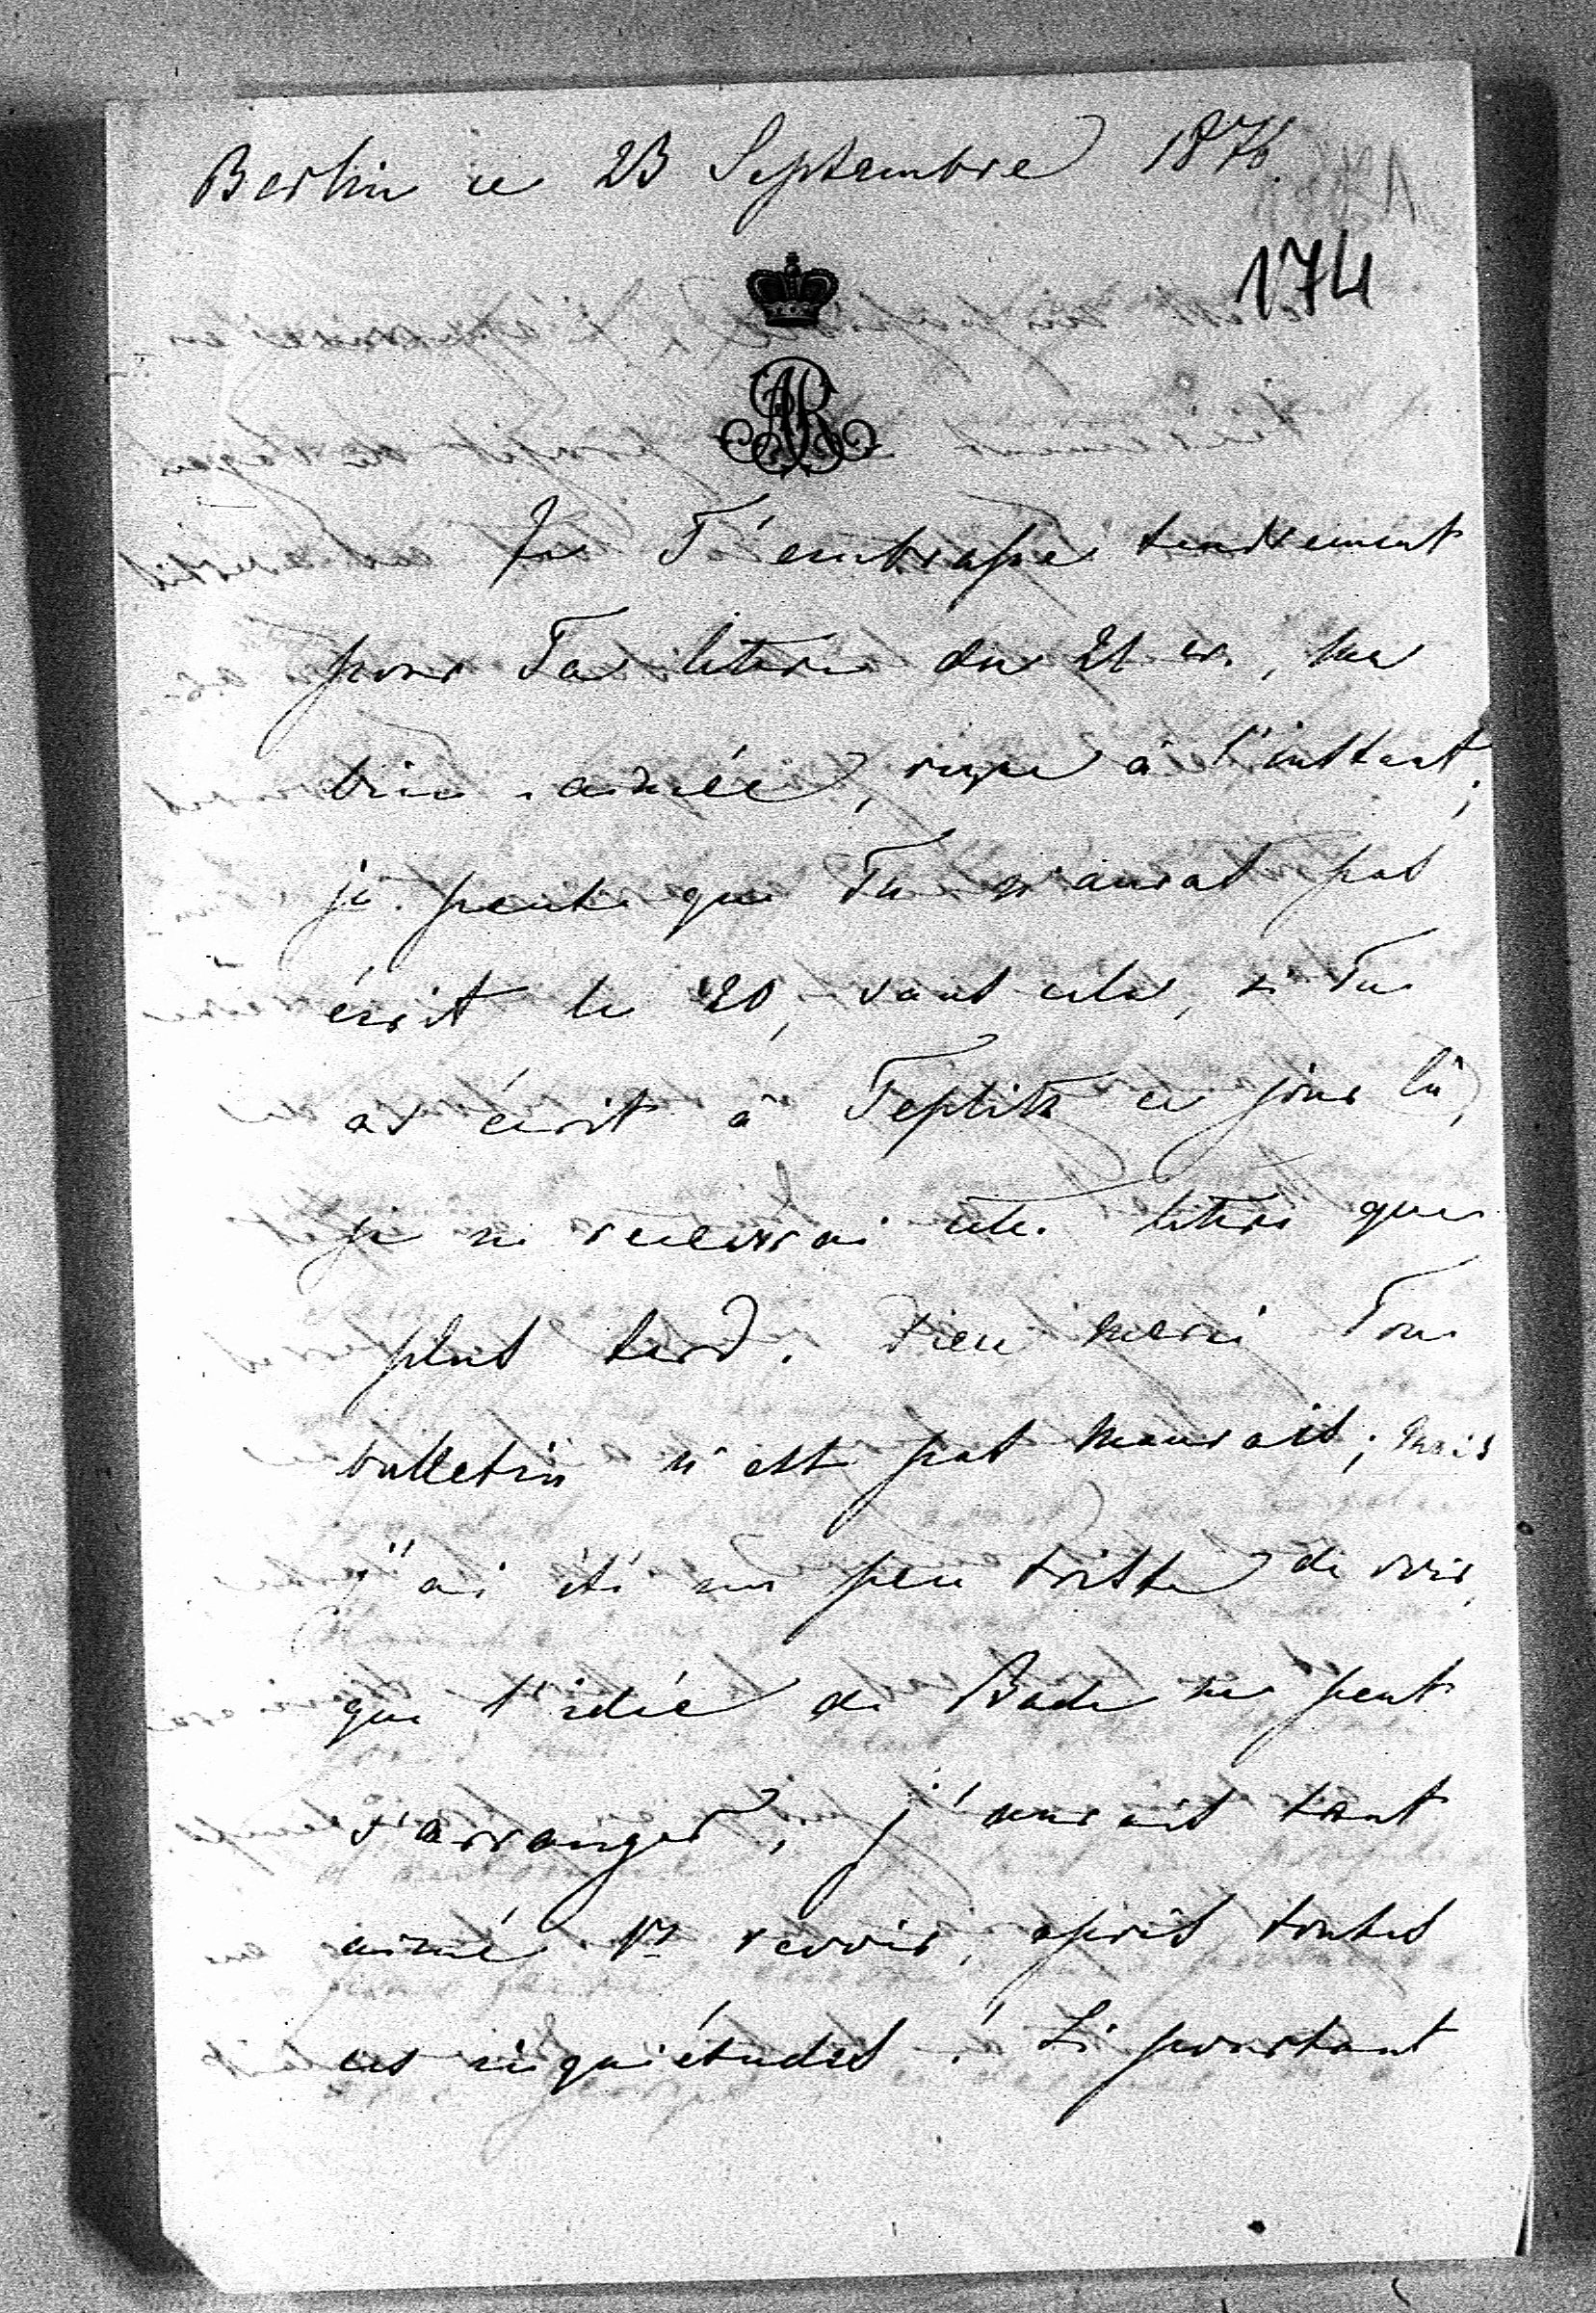 Berlin ce 23 Septembre 1876.
174
AR
Je T'embrasse tendrement
pour Ta lettre du 21 cr., ma
bien-aimée, reçue à l'instant;
je pense que Tu n'auras pas
écrit le 20, sans cela, si Tu
as écrit à Teplitz ce jour là,
je ne recevrai cette lettre que
plus tard. Dieu merci Ton
bulletin n'est pas mauvais; mais
j'ai été un peu triste de voir,
que l'idée de Bade ne peut
s'arranger, j'aurais tant
aimé Vs revoir, après toutes
ces inquiétudes! Si pourtant